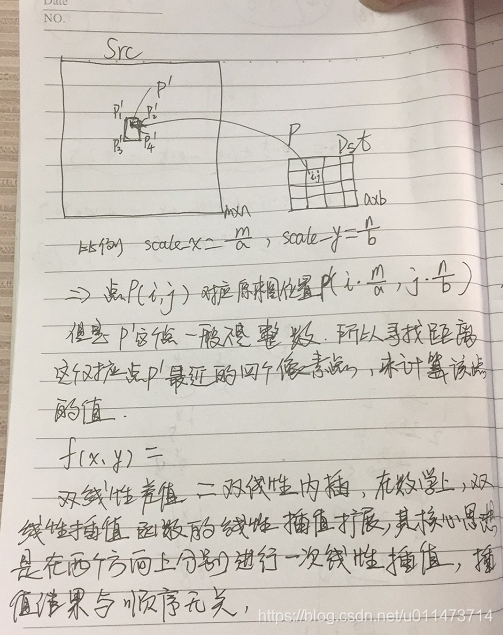 Date
NO.
Src
P'
P1' P2'
P3' P4'
P
Dst
i,j
m×n
a×b
比例 scale-x = m/a , scale-y = n/b
⇒ 点P(i,j) 对应原图位置P'(i·m/a , j·n/b)
但是 P'这个点一般不是整数. 所以寻找距离
这个对应点P'最近的四个像素点, 来计算该点
的值.
f(x,y) =
双线性差值 = 双线性内插, 在数学上, 双
线性插值 函数的线性 插值扩展, 其核心思想
是在两个方向上分别进行一次线性插值, 插
值结果与顺序无关,
https://blog.csdn.net/u011473714